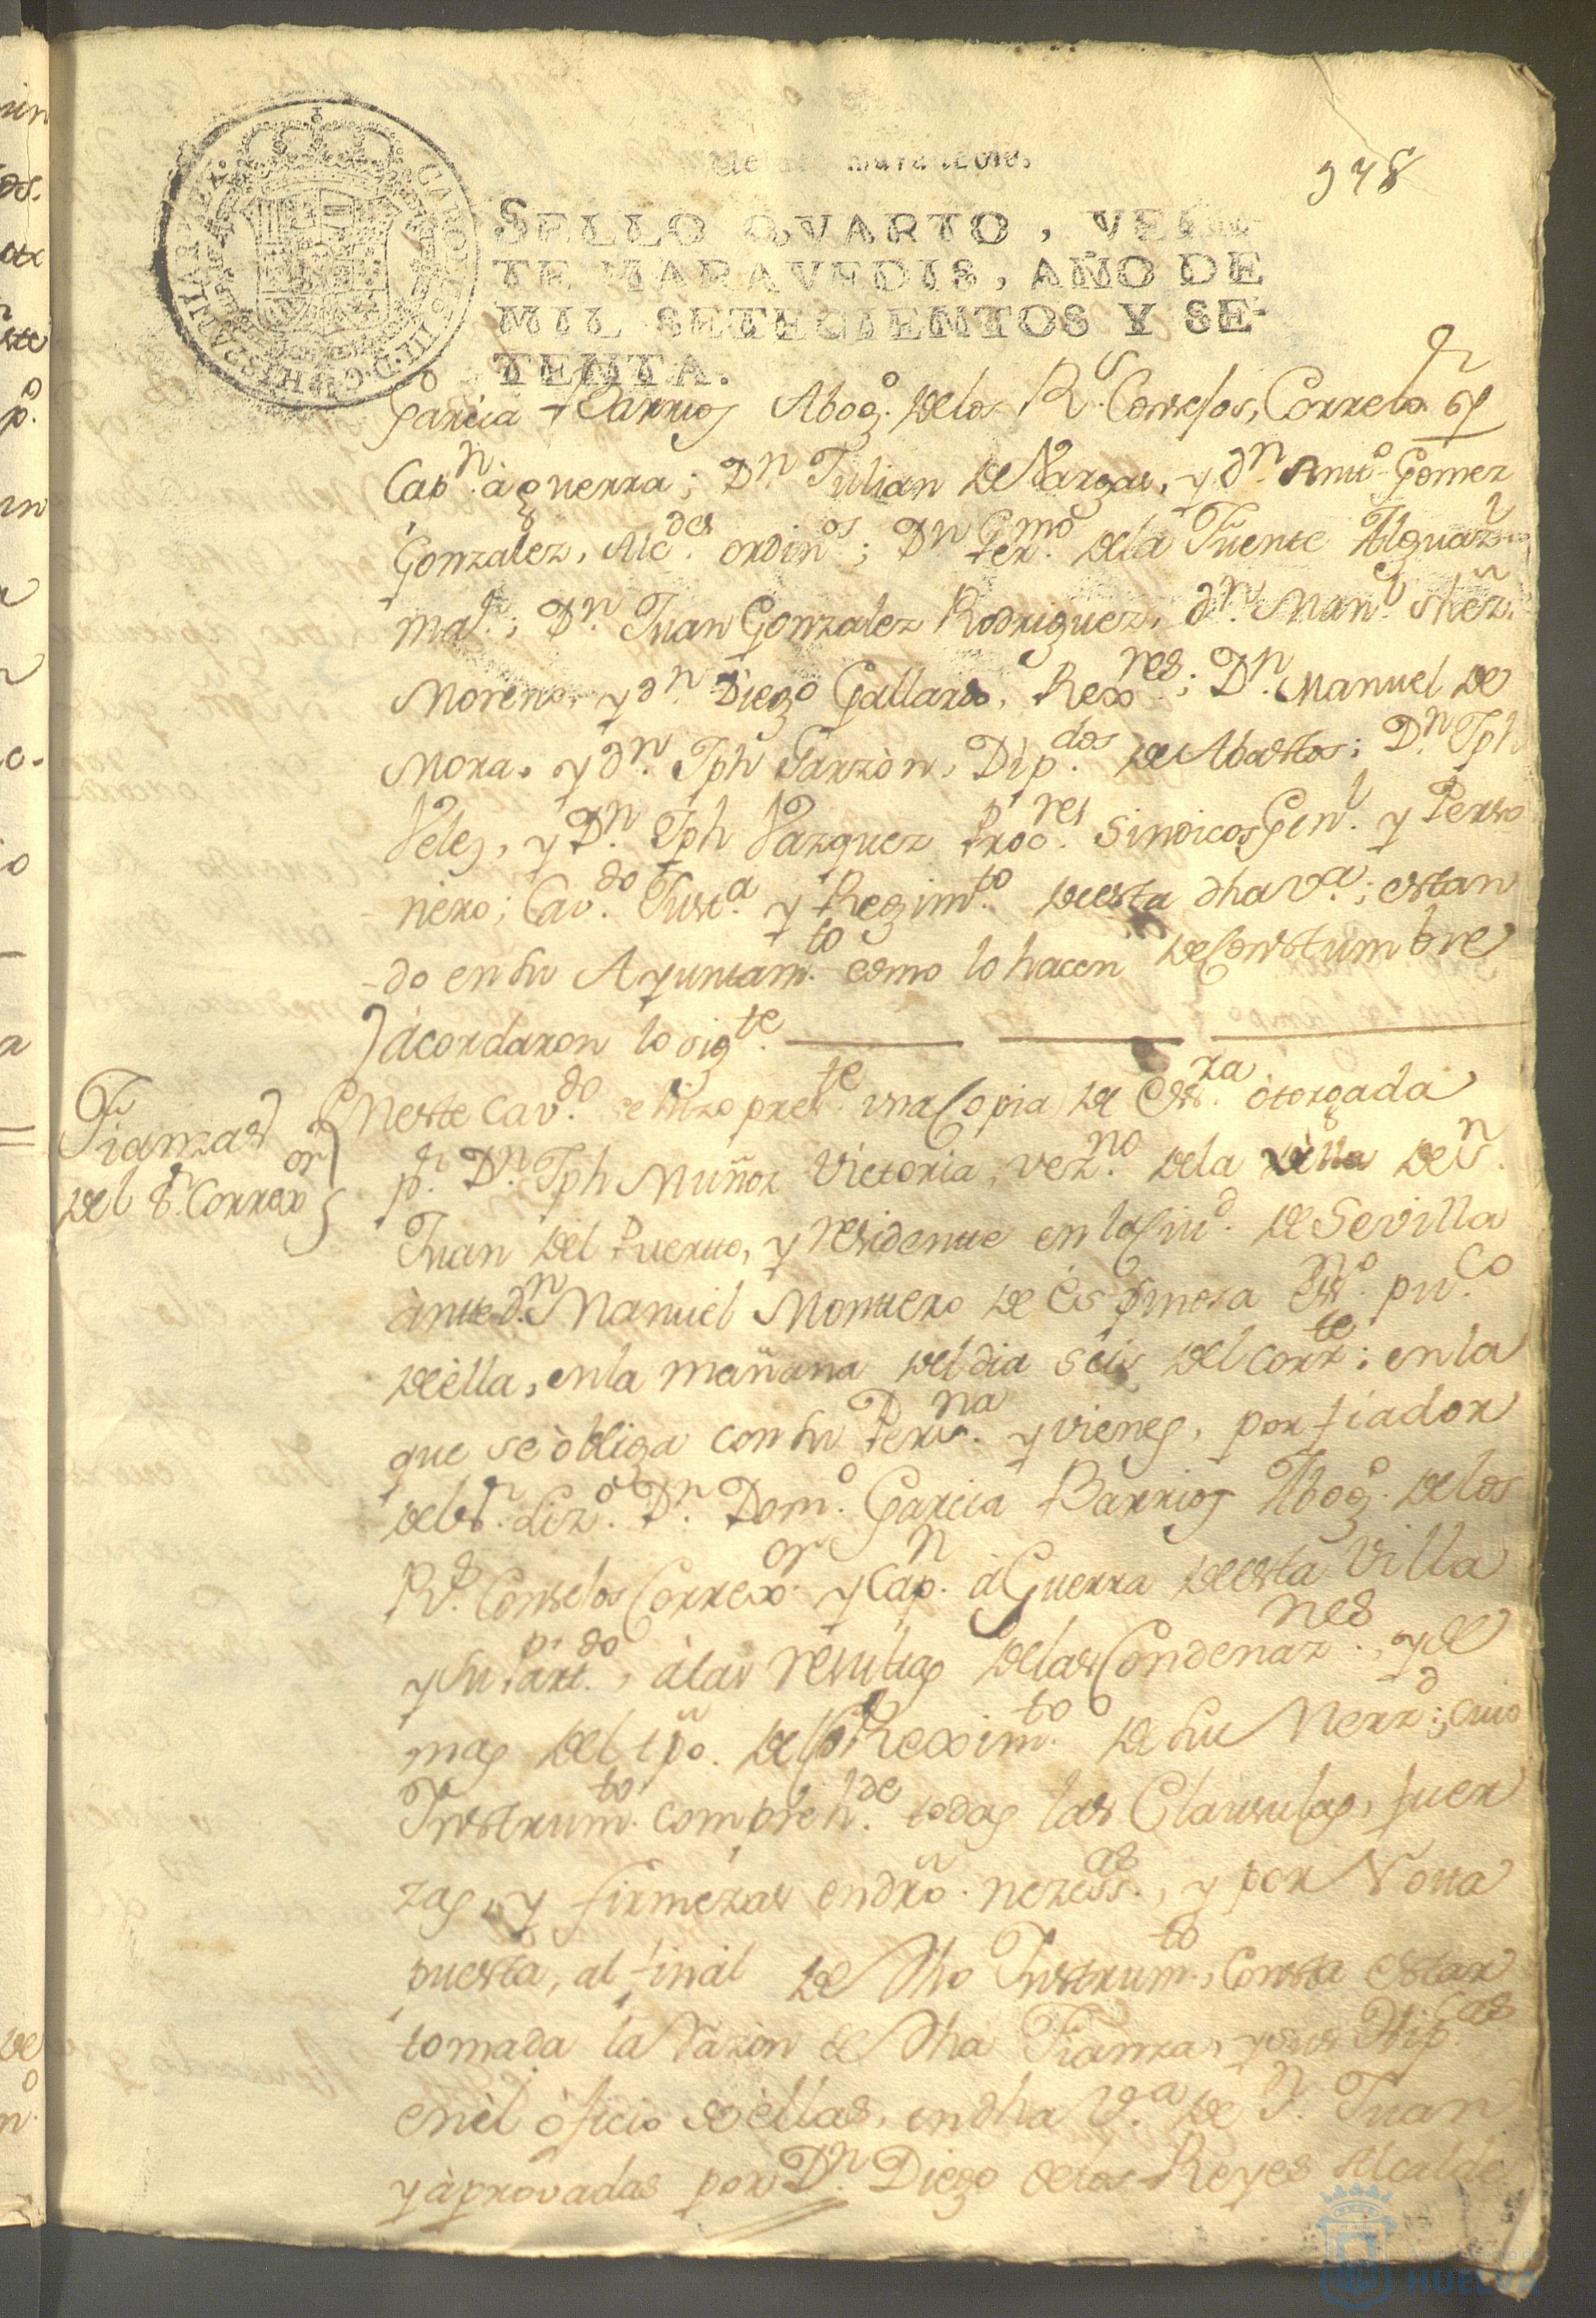 maravedis.
378
SELLO QVARTO, VEIN-
TE MARAVEDIS, AÑO DE
MIL SETECIENTOS Y SE-
TENTA.
Garcia Barrios Abogº. de los Rˢ. Consejos, Correxºʳ
Capⁿ. à guerra; Dⁿ. Julian de Vargas, y dⁿ. Antº Gomez
Gonzalez, Alcᵈᵉˢ. ordinºˢ; Dⁿ Germᵒ. de la Fuente Alguazˡ
maʳ.; Dⁿ. Juan Gonzalez Rodriguez, dⁿ. Manˡ. Shẽz.
Moreno, y dⁿ. Diego Gallardo, Rexʳᵉˢ; Dⁿ. Manuel de
Mora, y dⁿ. Jph Garzòn, Dipᵈᵒˢ. de Abastos; Dⁿ. Jph
Velez, y Dⁿ. Jph Vazquez Procʳᵉˢ. Sindicos Genˡ. y Perso
nero; Cavᵈᵒ. Justᵃ. y Regimᵗᵒ. de esta dha vᵃ.; estan
do en su Ayuntamᵗᵒ. como lo hacen de Constumbre
acordaron lo sigᵗᵉ.
Fianzas
del Sʳ. Correxºʳ
Eneste Cavᵈᵒ. se hizo presᵗᵉ. una Copia de Essʳᵃ. òtorgada
pʳ. Dⁿ. Jph Muñoz Victoria, vezⁿᵒ. de la villa de Sⁿ.
Juan del Puerto, y residente en la Ciuᵈ. de Sevilla
ànte dⁿ. Manuel Montero de Espinosa Essⁿᵒ. puᶜᵒ
de èlla, en la mañana del dia seis del corrᵗᵉ: en la
que se òbliga con su Persⁿᵃ. y vienes, por fiador
del Sʳ. Lizᵈᵒ. Dⁿ. Domº. Garcia Barrios Abogº. de los
Rˢ. Consejos Correxºʳ. y Capⁿ. à Guerra de esta Villa
y su Partᵈᵒ., à las resultas de las Condenazⁿᵉˢ., y de
mas del tp̃o. del Reximᵗᵒ. de su Merᵈ.; cuio
Instrumᵗᵒ. comprehᵈᵉ. todas las Clausulas, fuer
zas, y firmezas en dr̃o. nezessᵃˢ., y por Nota
puesta, al final de dho Instrumᵗᵒ., Consta estar
tomada la Razòn de dha Fianza, y sus Hipᶜᵃˢ
en èl òficio de èllas, en dha Vᵃ. de Sⁿ. Juan
y àprovadas por Dⁿ. Diego de los Reyes Alcalde
HUELVA